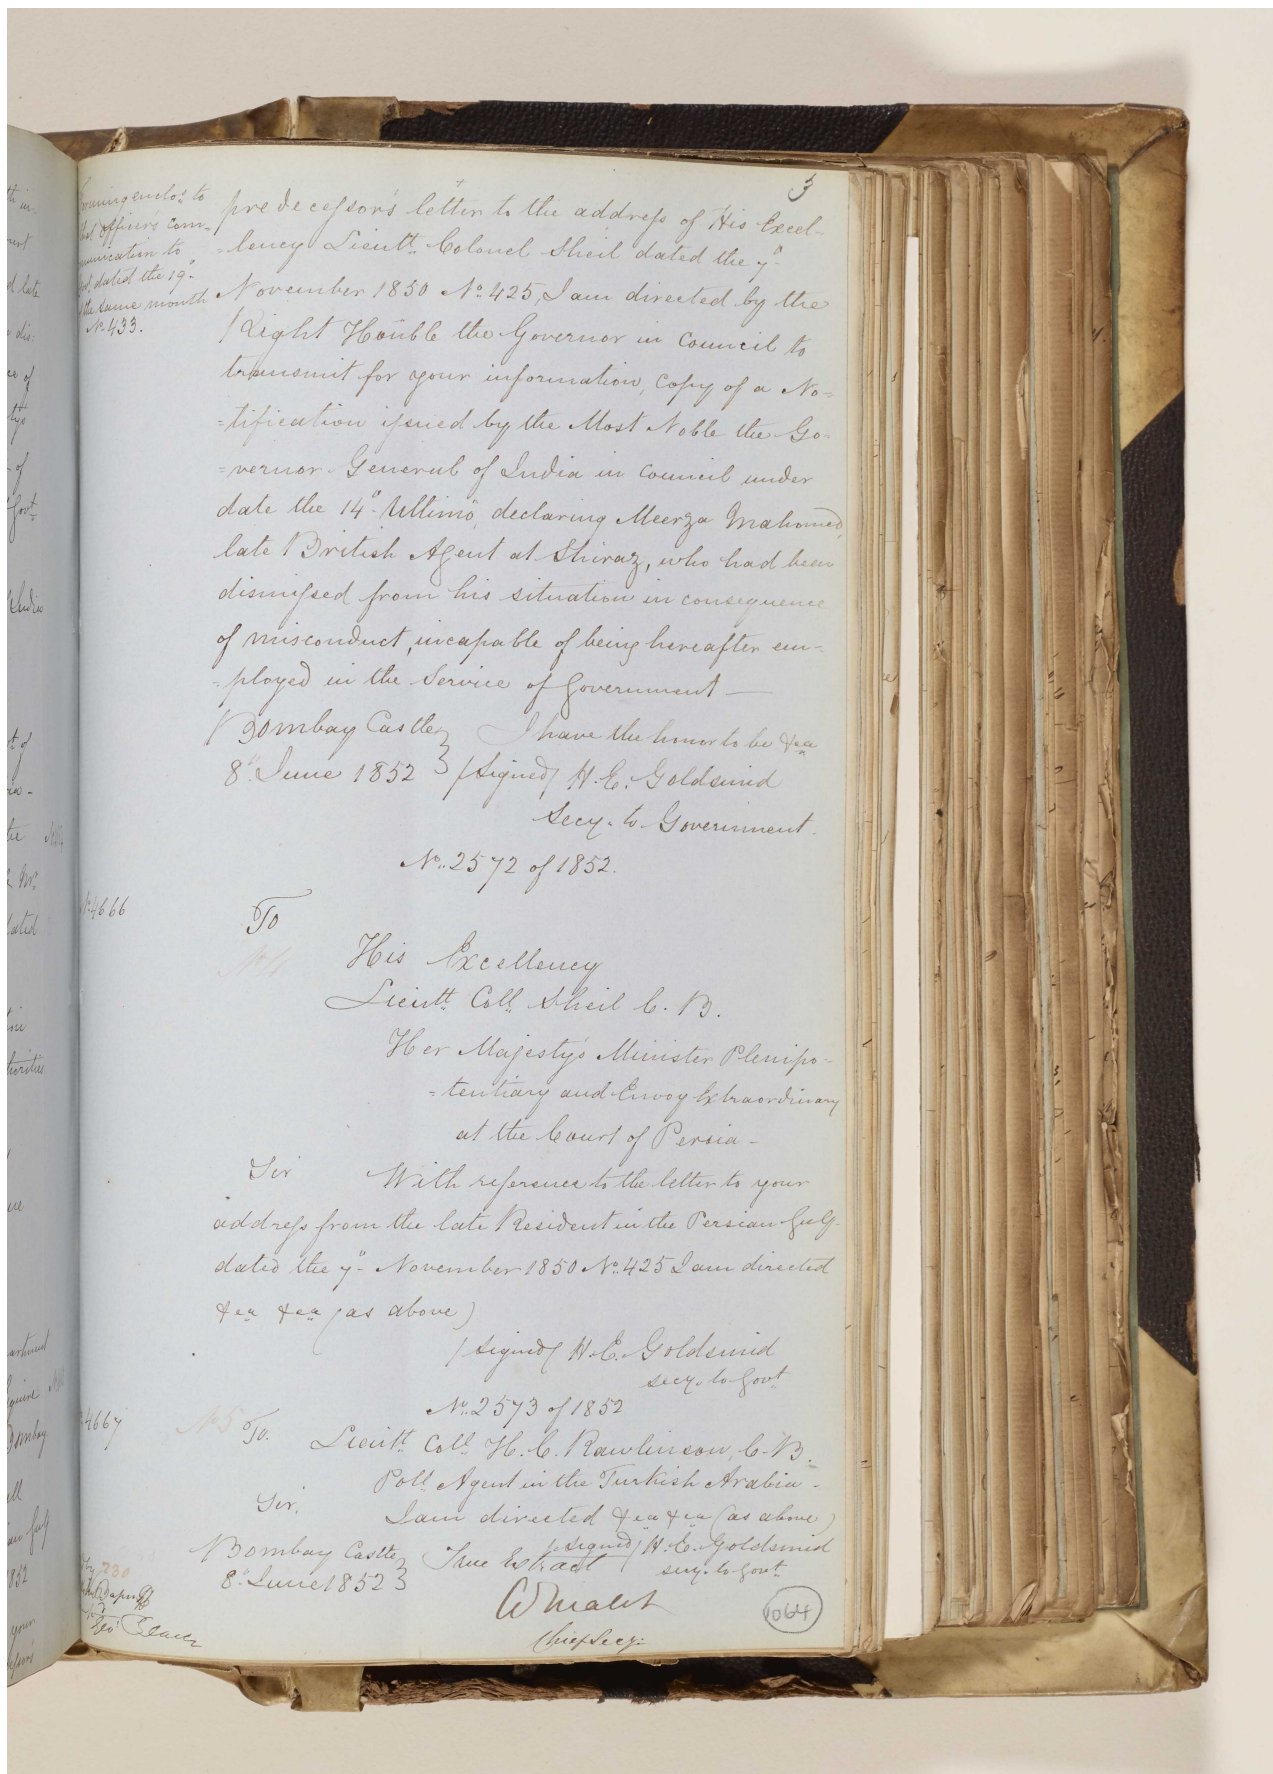 3
Forming enclos. to
that officer's com-
munication to
Govt. dated the 19th
of the same month
No. 433.
predecessor's letter to the address of His Excel-
=lency Lieutt. Colonel Sheil dated the 7th
November 1850 No. 425, I am directed by the
Right Honble the Governor in Council to
transmit for your information, copy of a No=
=tification issued by the Most Noble the Go-
=vernor General of India in Council under
date the 14th Ultimo, declaring Meerza Mahomed,
late British Agent at Shiraz, who had been
dismissed from his situation in consequence
of misconduct, incapable of being hereafter em-
=ployed in the Service of Government —
Bombay Castle } I have the honor to be &ca
8th June 1852 } /Signed/ H. E. Goldsmid
Secy. to Government.
No. 2572 of 1852.
No. 4666
To
His Excellency
Lieutt. Coll. Sheil C. B.
Her Majesty's Minister Plenipo-
=tentiary and Envoy Extraordinary
at the Court of Persia -
Sir With reference to the letter to your
address from the late Resident in the Persian Gulf
dated the 7th November 1850 No. 425 I am directed
&ca &ca (as above)
/Signed/ H. E. Goldsmid
Secy. to Govt.
No. 2573 of 1852
4667
No 5
To. Lieutt. Coll. H. C. Rawlinson, C. B.
Poll. Agent in the Turkish Arabia -
Sir, I am directed &ca &ca (as above)
/Signed/ H. E. Goldsmid
secy. to Govt.
Bombay Castle } True Extract
8th June 1852 }
A Malet
Chief Secy:
230
1064